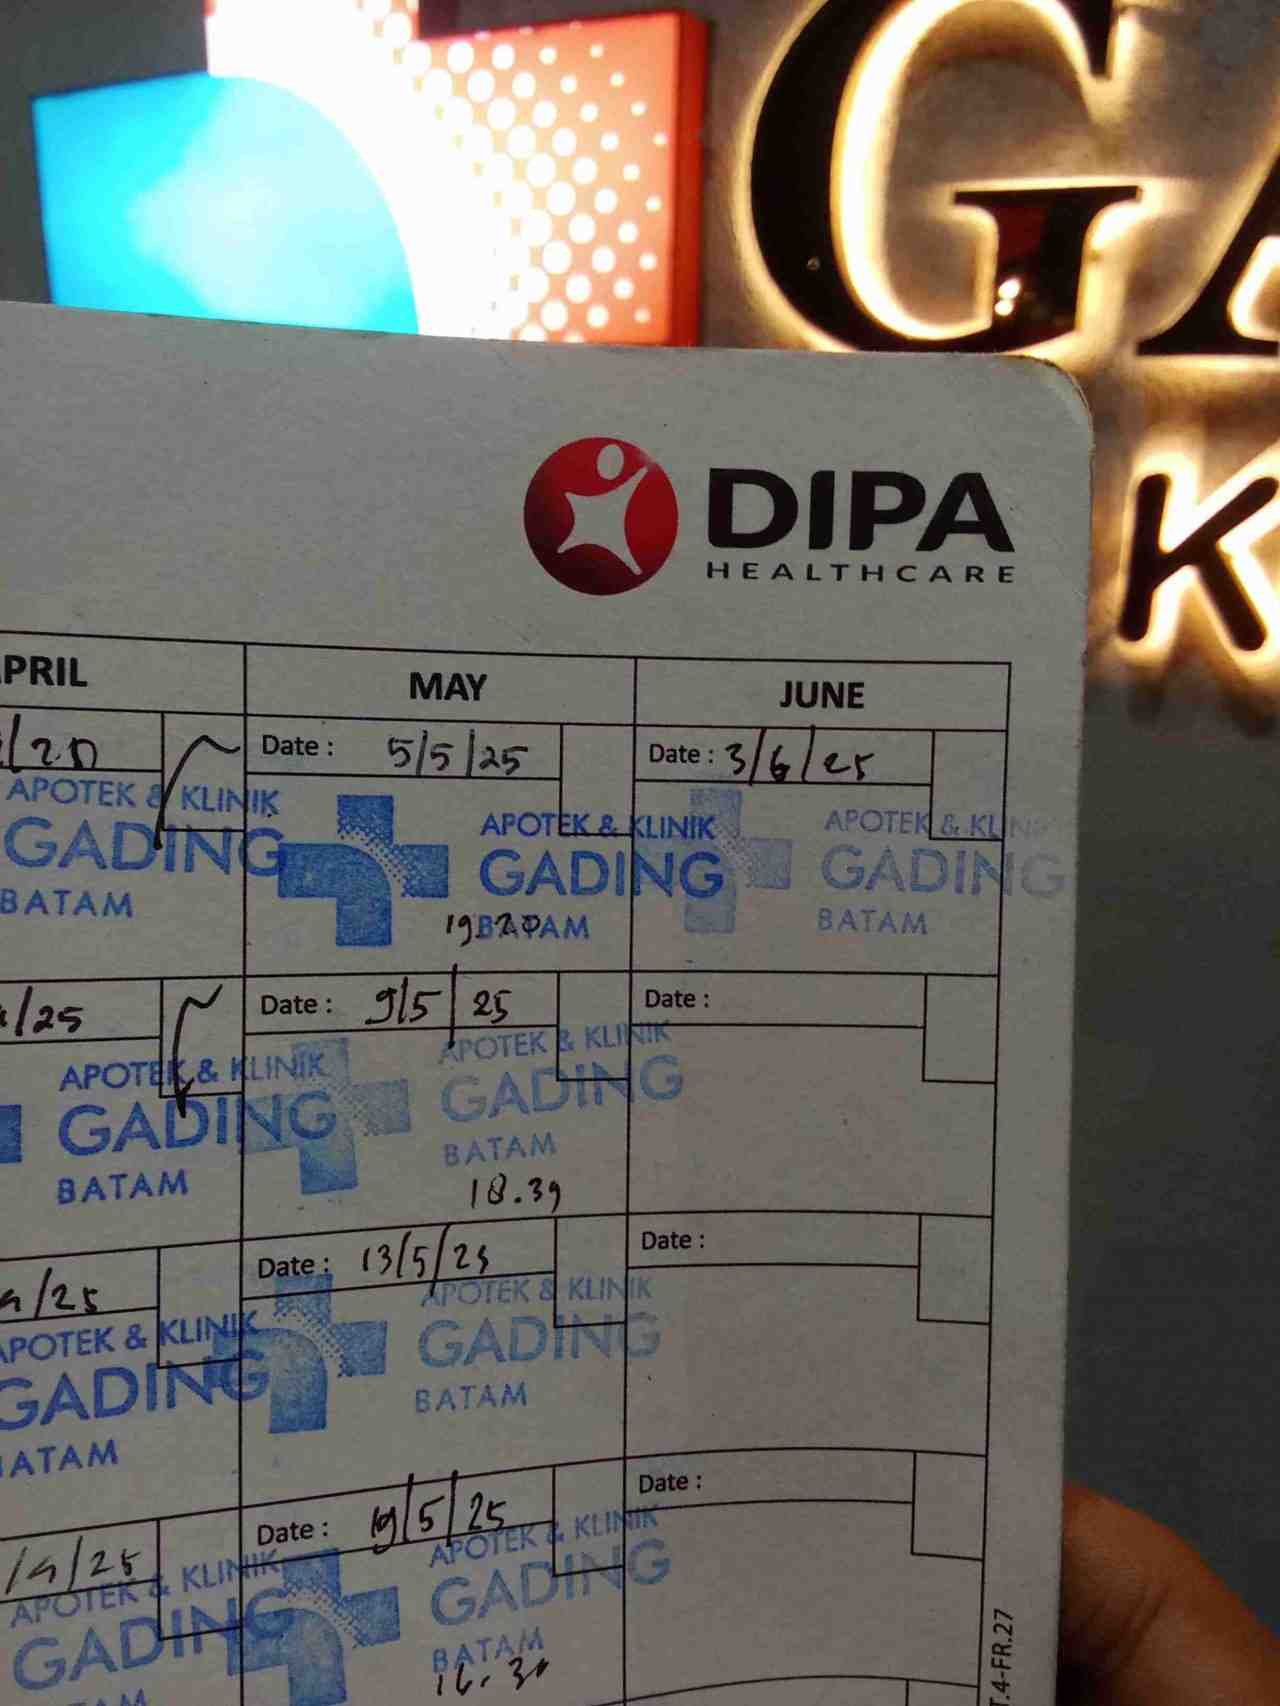 GA
K
DIPA
HEALTHCARE
PRIL
MAY
JUNE
/25
Date : 5/5/25
Date : 3/6/25
APOTEK & KLINIK
GADING
BATAM
APOTEK & KLINIK
GADING
BATAM
APOTEK & KLINIK
GADING
BATAM
/25
Date : 9/5/25
Date :
APOTEK & KLINIK
GADING
BATAM
APOTEK & KLINIK
GADING
BATAM
18.39
/25
Date : 13/5/25
Date :
APOTEK & KLINIK
GADING
ATAM
APOTEK & KLINIK
GADING
BATAM
/25
Date : 19/5/25
Date :
APOTEK & KLINIK
GADING
AM
APOTEK & KLINIK
GADING
BATAM
T.4-FR.27